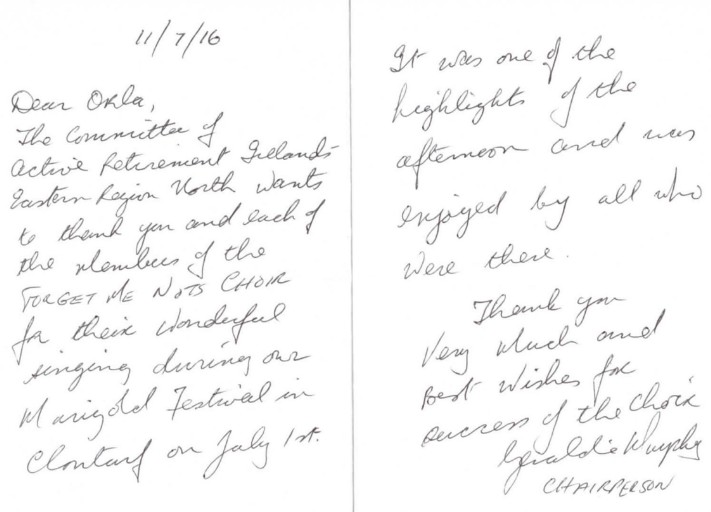 11/7/16
Dear Orla,
The Committee of
Active Retirement Ireland's
Eastern Region North wants
to thank you and each of
the Members of the
FORGET ME NOTS CHOIR
for their wonderful
singing during our
Marigold Festival in
Clontarf on July 1st.
It was one of the
highlights of the
afternoon and was
enjoyed by all who
were there.
Thank you
Very Much and
Best Wishes for
success of the Choir
Geraldie Murphy
CHAIRPERSON